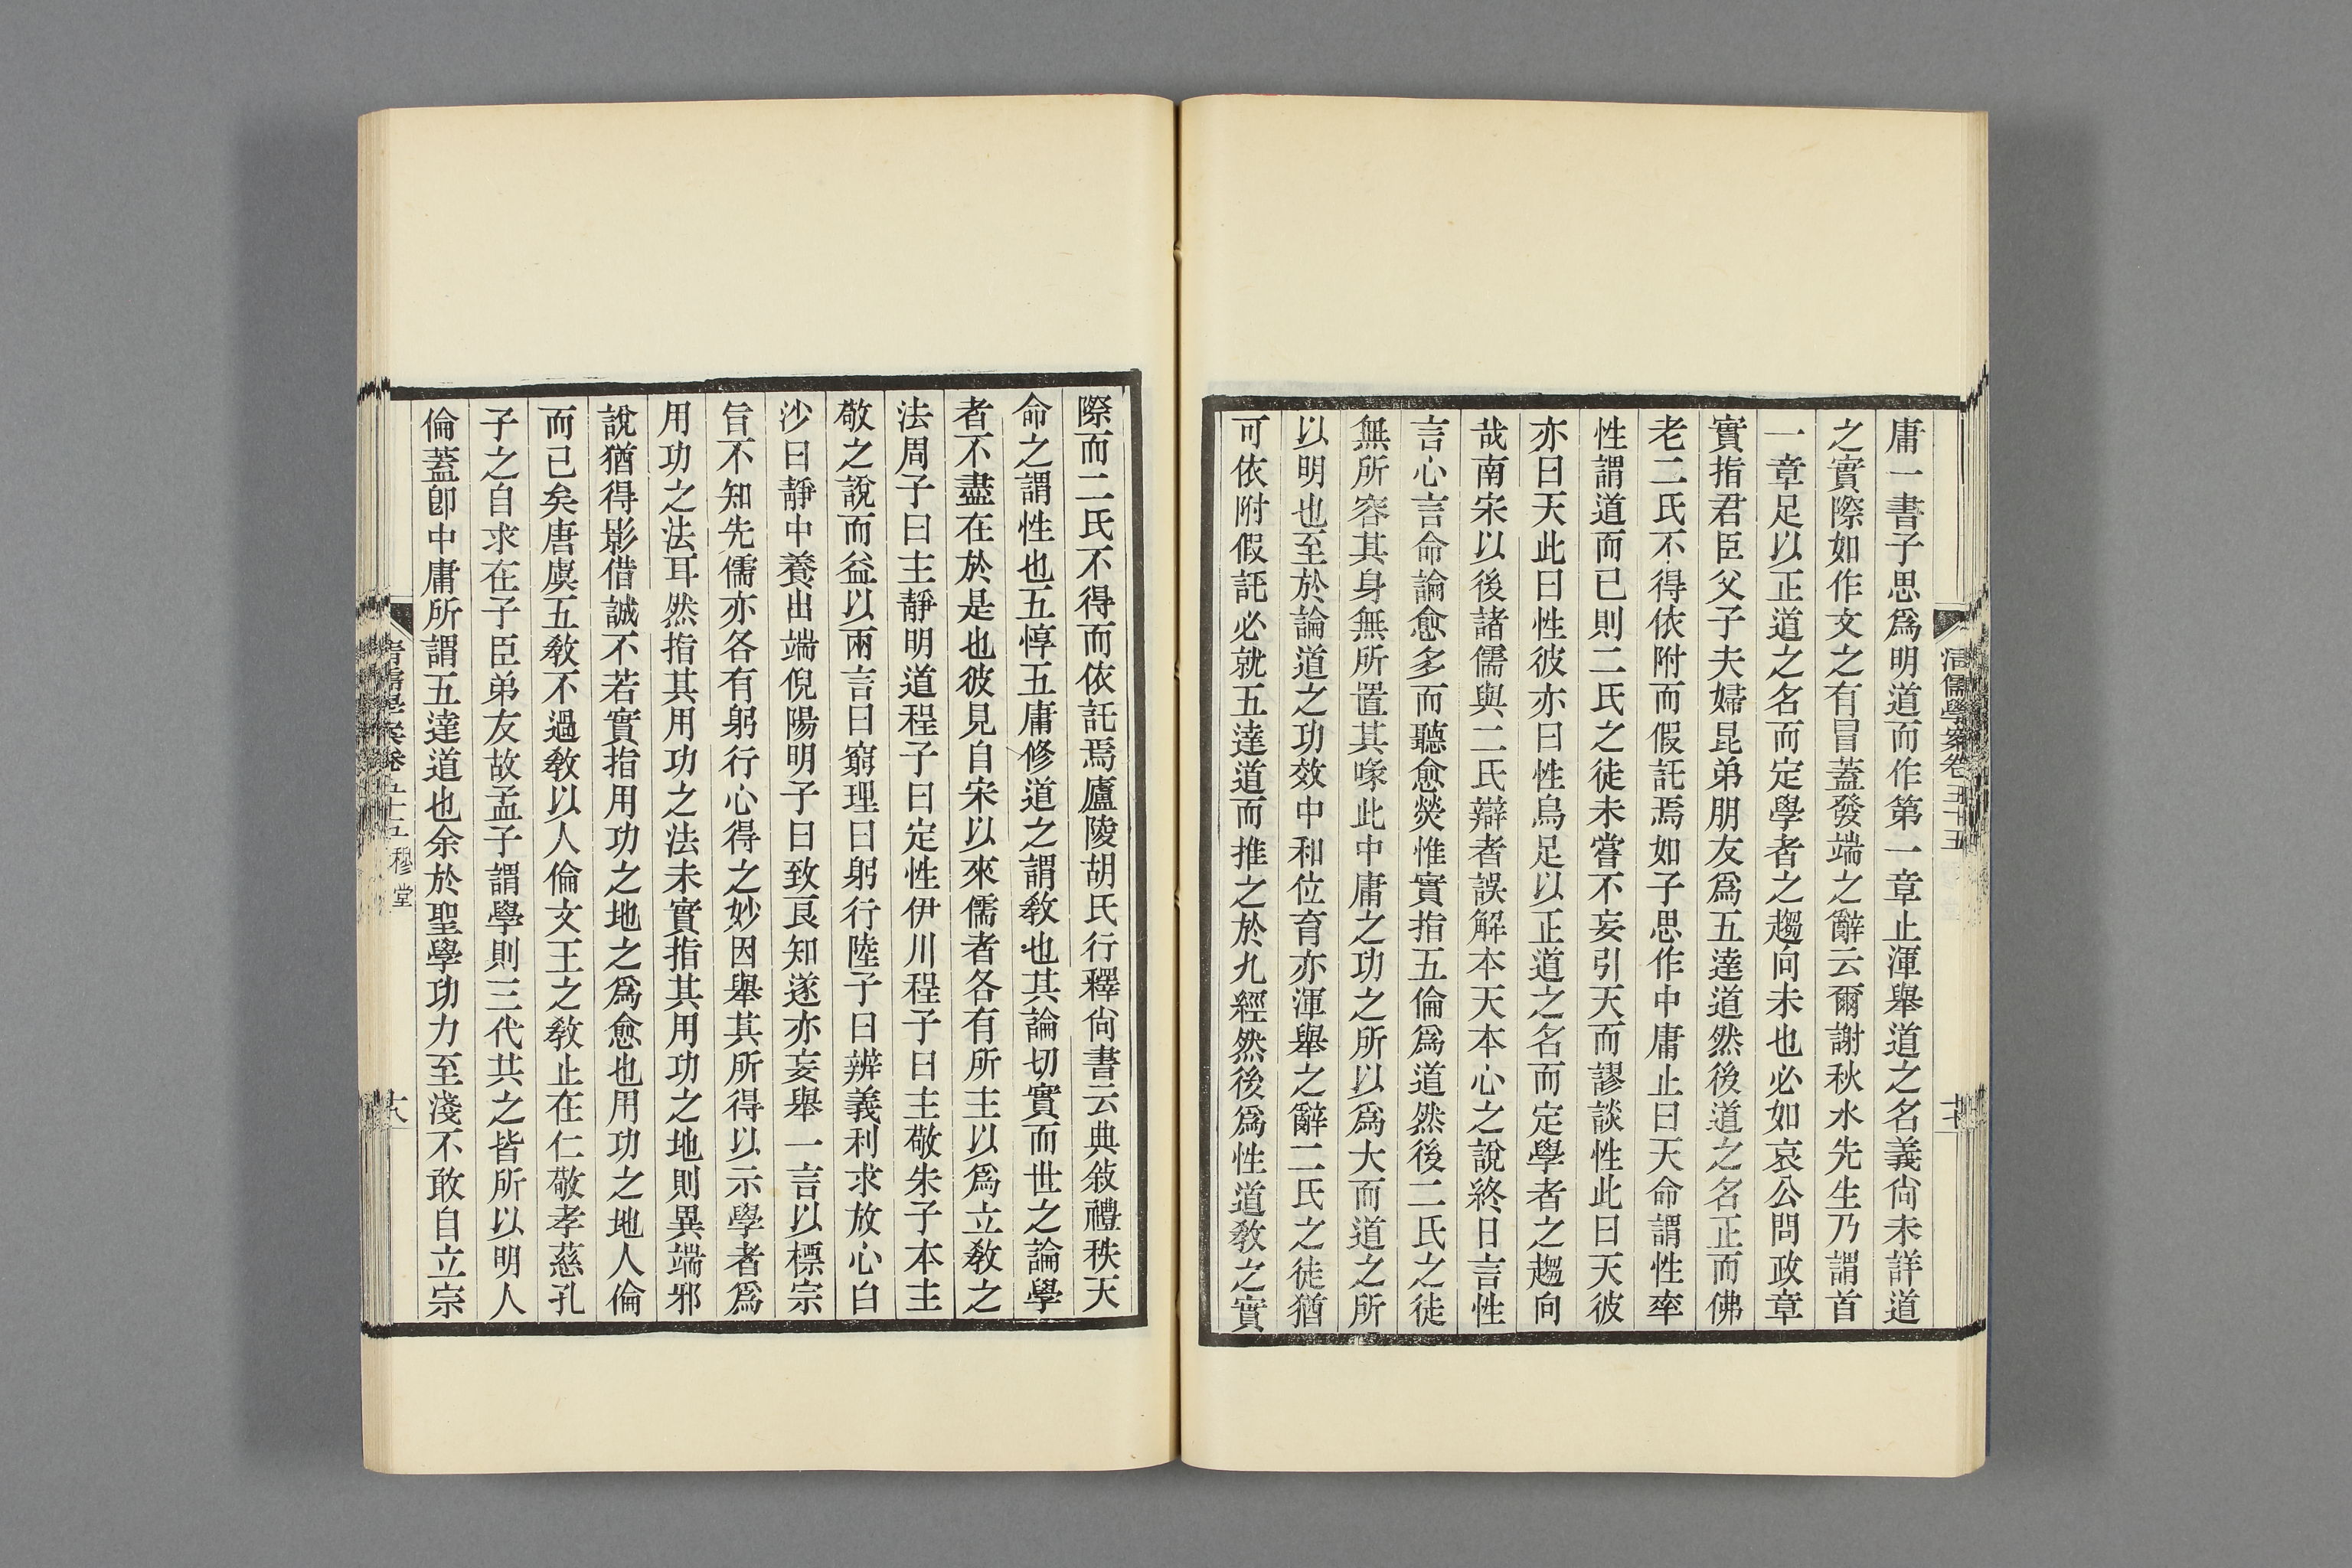 清儒學案卷五十五
庸一書子思爲明道而作第一章止渾舉道之名義尙未詳道
之實際如作文之有冒蓋發端之辭云爾謝秋水先生乃謂首
一章足以正道之名而定學者之趨向未也必如哀公問政章
實指君臣父子夫婦昆弟朋友爲五達道然後道之名正而佛
老二氏不得依附而假託焉如子思作中庸止曰天命謂性率
性謂道而已則二氏之徒未嘗不妄引天而謬談性此曰天彼
亦曰天此曰性彼亦曰性烏足以正道之名而定學者之趨向
哉南宋以後諸儒與二氏辯者誤解本天本心之說終日言性
言心言命論愈多而聽愈熒惟實指五倫爲道然後二氏之徒
無所容其身無所置其喙此中庸之功之所以爲大而道之所
以明也至於論道之功效中和位育亦渾舉之辭二氏之徒猶
可依附假託必就五達道而推之於九經然後爲性道敎之實
際而二氏不得而依託焉廬陵胡氏行釋尙書云典敍禮秩天
命之謂性也五惇五庸修道之謂敎也其論切實而世之論學
者不盡在於是也彼見自宋以來儒者各有所主以爲立敎之
法周子曰主靜明道程子曰定性伊川程子曰主敬朱子本主
敬之說而益以兩言曰窮理曰躬行陸子曰辨義利求放心白
沙曰靜中養出端倪陽明子曰致良知遂亦妄舉一言以標宗
旨不知先儒亦各有躬行心得之妙因舉其所得以示學者爲
用功之法耳然指其用功之法未實指其用功之地則異端邪
說猶得影借誠不若實指用功之地之爲愈也用功之地人倫
而已矣唐虞五敎不過敎以人倫文王之敎止在仁敬孝慈孔
子之自求在子臣弟友故孟子謂學則三代共之皆所以明人
倫蓋卽中庸所謂五達道也余於聖學功力至淺不敢自立宗
清儒學案卷五十五 穆堂
十八